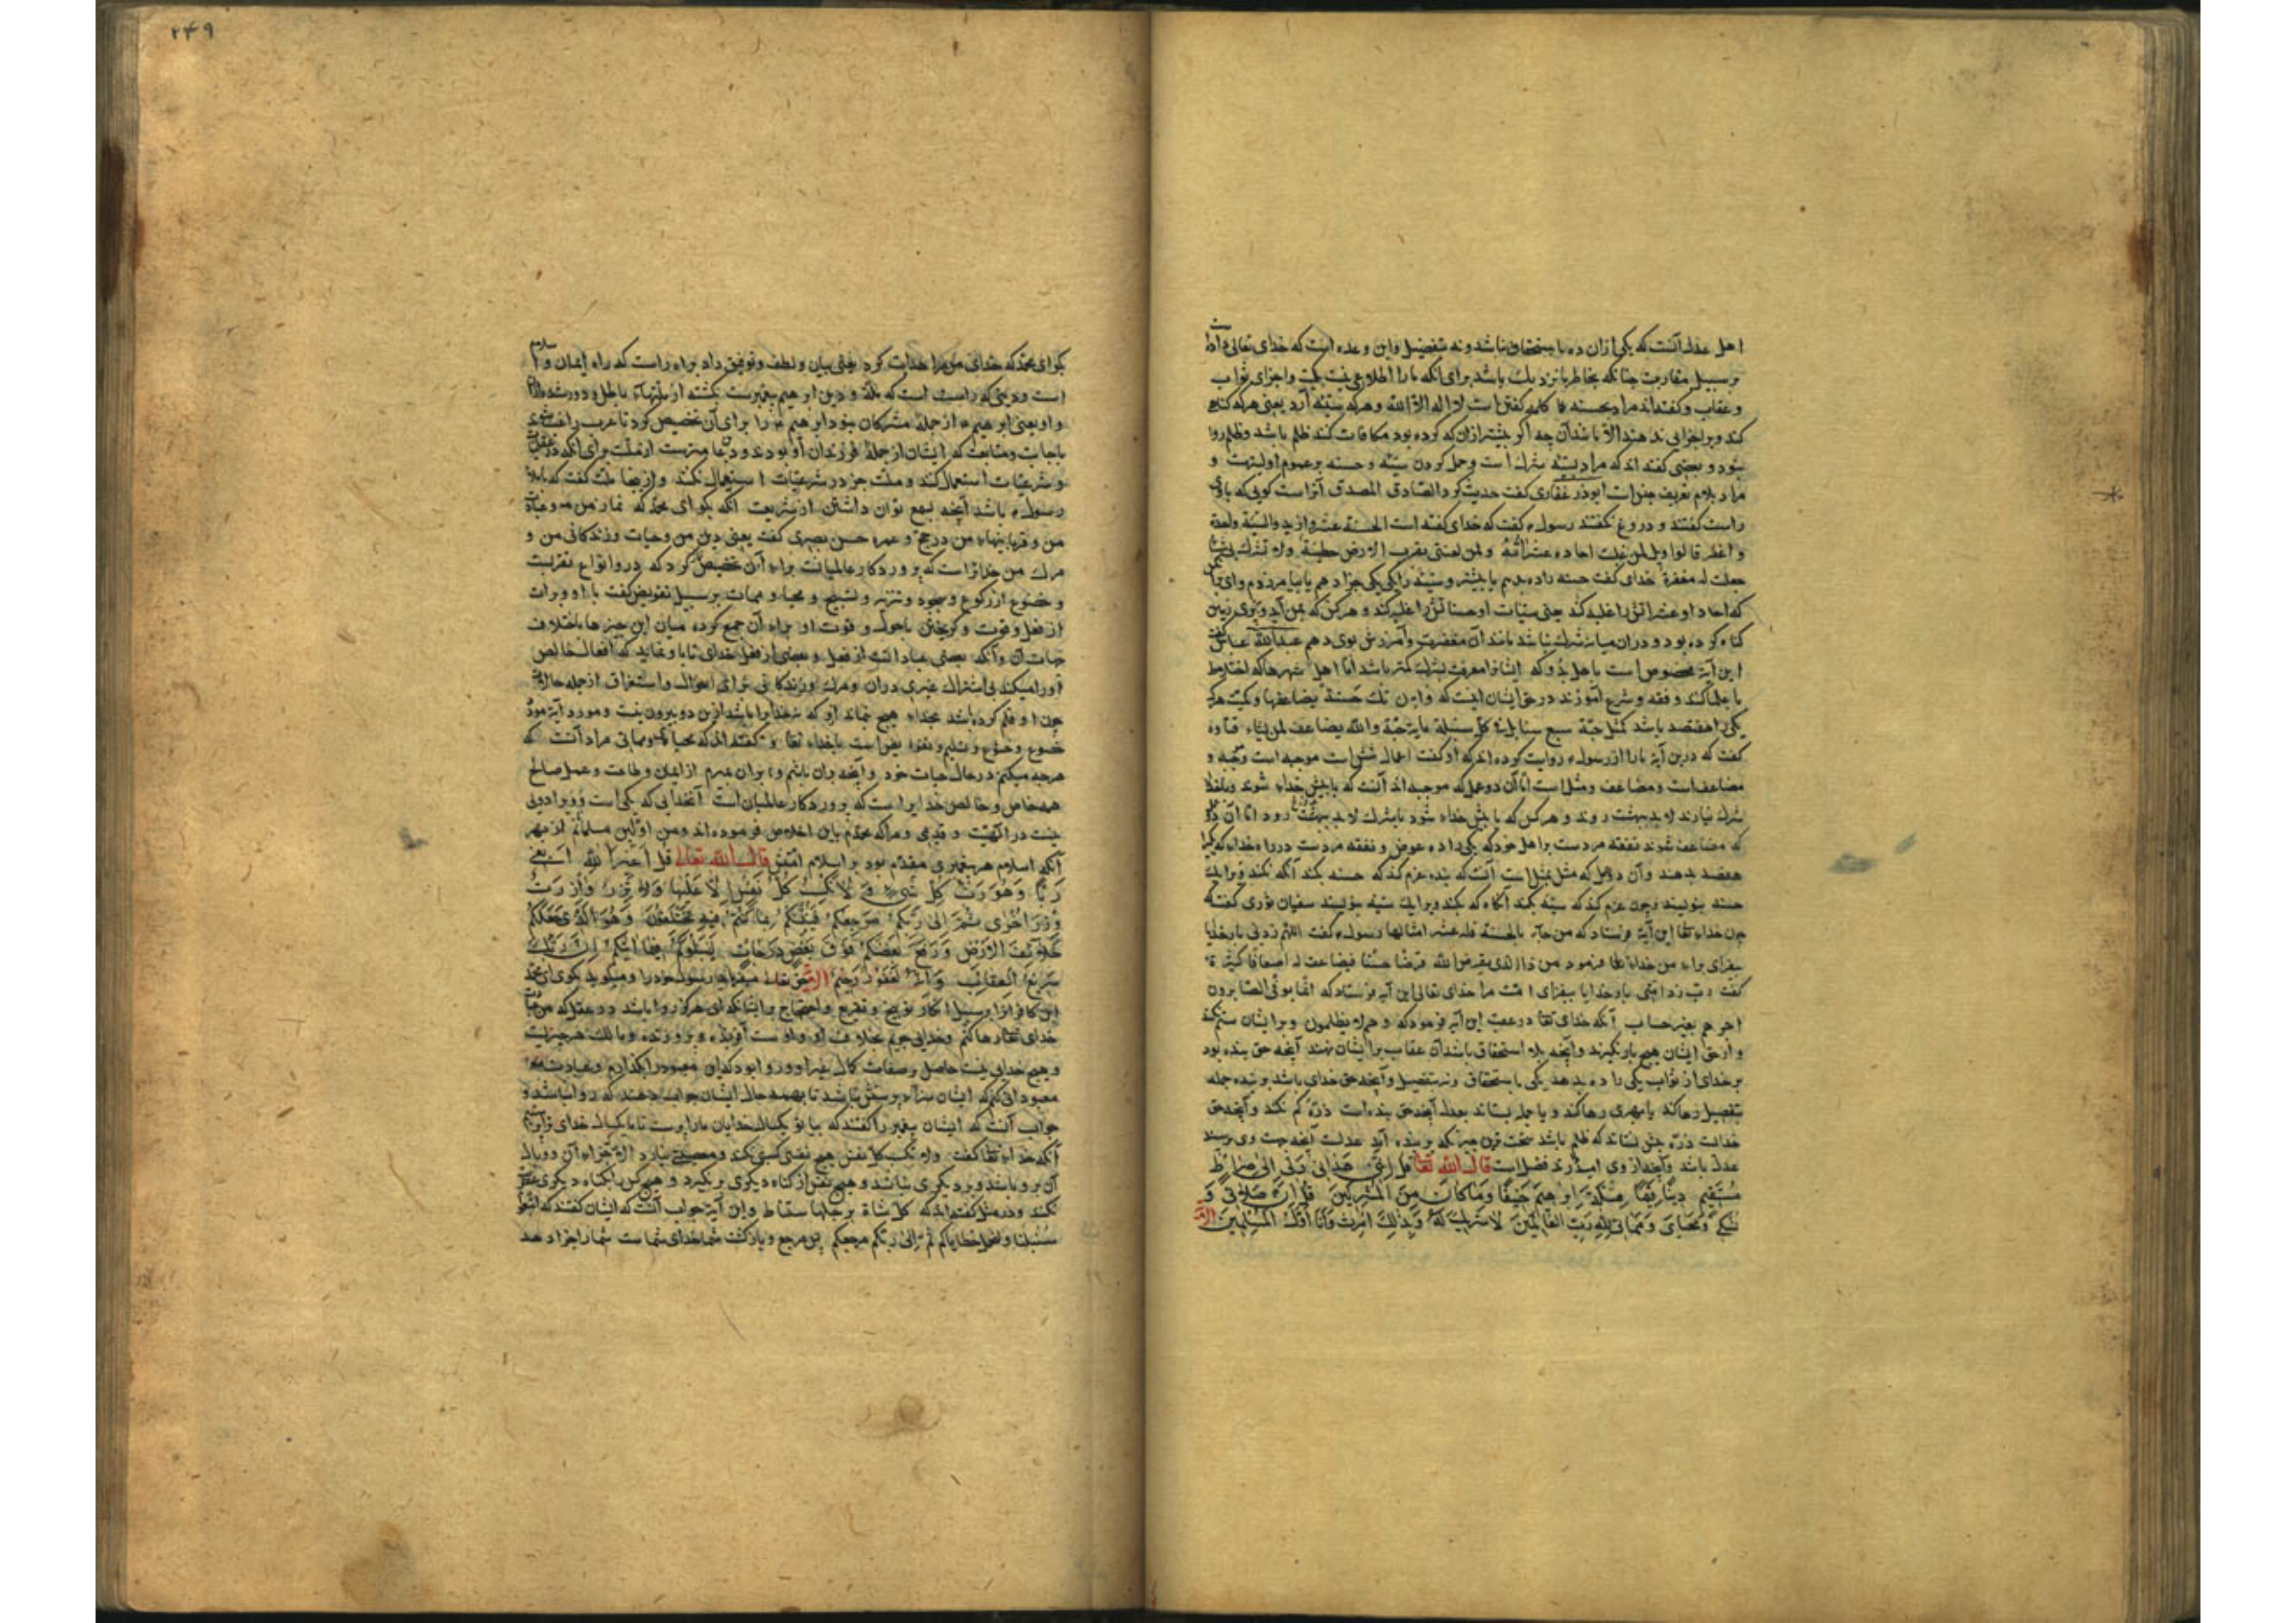 اهل عدل آنست که یکی ازان ده باستحقاق باشد ونه بتفضیل واین وعده است که خدای تعالی داد
بر سبیل مقاربت چنانکه بخاطر ما نزدیک باشد برای آنکه ما را اطلاع نیست واجزای ثواب
وعقاب وکفته اند مراد بحسنه کلمه کفتن است لا اله الا الله وهرکه سیئه آرد یعنی هرکه کناه
کند ویرا جزایی ندهند الا باشد آن چه اکر بیشتر ازان که کرده بود مکافات کنند ظلم باشد وظلم روا
نبود وبعضی کفته اند که مراد بسیئه شرک است وحمل کردن سیئه وحسنه بر عموم اولیتر است و
مراد بلام تعریف جنس است ابوذر غفاری کفت حدیث کرد الصادق المصدق
راست کفتند و دروغ نکفتند رسول کفت که خدای کفته است الحسنة عشر وازید والسیئة واحدة
و اغفر فالویل لمن غلبت احاده عشراته ولمن لقینی بقراب الارض خطیئة ولم یشرک بی
جعلت له مغفرة خدای کفت حسنه را ده بدهم یا بیشتر وسیئه را یکی یکی جزا دهم یا بیامرزم وای
که احاد او عشرات را غلبه کند یعنی سیئات او حسنات را غلبه کند وهرکس که بمن آید
کناه کرده بود ودران میانه شرک نباشد مانند آن مغفرت وآمرزش بوی دهم عبدالله عباس کفت
این آیة مخصوص است باهل بدو که اما اهل شهرها که اختلاط
با علما کنند وفقه وشرع آموزند در حق ایشان اینست که وان تک حسنة یضاعفها
یکی را هفتصد باشد کمثل حبة سبع سنابل فی کل سنبلة مایة حبة والله یضاعف لمن یشاء قتاده
کفت که درین آیة ما را از رسول روایت کرده اند که او کفت اعمال شش است موجبه است وموجبه و
مضاعف است ومضاعف ومثل است اما آن دو عمل که موجبه اند آنست که با پیش خدا شوند
شرک نیارند لابد ببهشت روند وهرکس که با پیش خدا شود با شرک لابد رود اما آن دو
که مضاعف شوند نفقه مردست بر اهل خود که یکی را ده عوض ونفقه مردست در راه خدا که یکی را
هفتصد بدهند وآن دو عمل که مثل بمثل است آنست که بنده عزم کند که حسنه بکند آنکه نکند ویرا یک
حسنه بنویسند وچون عزم کند که سیئه بکند آنکاه که بکند ویرا یک سیئه بنویسند سفیان ثوری کفت که
چون خدای تعا این آیة فرستاد که من جاء بالحسنة فله عشر امثالها رسول کفت اللهم زدنی بارخدایا
بیفزای براء من خدای تعا فرمود من ذا الذی یقرض الله قرضا حسنا فیضاعفه له اضعافا کثیرة
کفت رب زد امتی بارخدایا بیفزای امت مرا خدای تعالی این آیه فرستاد که انما یوفی الصابرون
اجرهم بغیر حساب آنکه خدای تعا در عقب این آیه فرمود که وهم لا یظلمون وبرایشان ستم نکنند
واز حق ایشان هیچ باز نکیرند وآنچه بلا استحقاق باشد آن عقاب بر ایشان ننهند آنچه حق بنده بود
بر خدای از ثواب یکی را ده بدهد یکی باستحقاق ونه بتفضیل وآنچه حق خدای باشد بر بنده جمله
بتفضیل رها کند یا بهری رها کند ویا جمله بستاند بعدل آنچه حق بنده است ذره کم نکند وآنچه حق
خداست ذره بیش نستاند که ظلم باشد سخت ترین چیزی که بر بنده آید عدلست آنچه جهت وی رسد
عدل باشد وآنچه از وی امید دارند فضل است قال الله تعا قل اننی هدانی ربی الی صراط
مستقیم دینا قیما ملة ابراهیم حنیفا وما کان من المشرکین قل ان صلاتی و
نسکی ومحیای ومماتی لله رب العالمین لا شریک له وبذلک امرت وانا اول المسلمین
۲۴۹
بکو ای محمد که خدای من مرا هدایت کرد یعنی بیان ولطف وتوفیق داد براه راست که راه ایمان واسلام
است ودینی که راست است که ملة ودین ابرهیم پیغمبرست بکشته از ملتهاء باطل ودور شده
واو یعنی ابرهیم از جمله مشرکان نبود ابرهیم را برای آن تخصیص کرد تا عرب راغب شوند
باجابت ومتابعت که ایشان از جمله فرزندان او بودند
وشرعیات استعمال کنند وملت جز در شرعیات استعمال نکنند
رسول باشد آنچه توان داشتن از شریعت آنکه بکو ای محمد که نماز من
من وقربانیهاء من در حج وعمره حسن بصری کفت یعنی دین من وحیات وزندکانی من و
مرک من خدایراست که پروردکار عالمیانست براء آن تخصیص کرد که درو انواع تقربست
وخضوع از رکوع وسجود وتنزیه وتسبیح ومحیا وممات بر سبیل تفویض کفت با او وبرات
از فعل وقوت وکریختن باحول وقوت او براء آن جمع کرد میان این چیزها باختلاف
جهات آن وآنکه بعضی عبادات است از فعل وبعضی از فعل خدای تا با ونماید که افعال خالص
او را میکند بی اشتراک غیری دران ومرک وزندکانی برای احوال واستغراق از جمله حالات
چون او فلم کرده باشد بخداء هیچ نماند او که نه خدایرا باشد ازین دو بیرون نیست ومورد آیة مورد
خضوع وخشوع وتسلیم وتفویض است باخدای تعا وکفته اند که محیای ومماتی مراد آنست که
هرچه میکنم در حال حیات خود وآنچه بران باشم وبران بمیرم از ایمان وطاعت وعمل صالح
همه خاص وخالص خدایراست که پروردکار عالمیان است آنخدایی که یکی است وویرا دومی
نیست در الهیت وقدیمی ومرا که محمدم باین اخلاص فرموده اند ومن اولین مسلمانم از بهر
آنکه اسلام هر پیغمبری مقدم بود بر اسلام امتش قال الله تعالی قل اغیر الله ابغی
ربا وهو رب کل شیء ولا تکسب کل نفس الا علیها ولا تزر وازرة
وزر اخری ثم الی ربکم مرجعکم فینبئکم بما کنتم فیه تختلفون وهو الذی جعلکم
خلایف الارض ورفع بعضکم فوق بعض درجات لیبلوکم فیما آتیکم ان ربک
سریع العقاب وانه لغفور رحیم رسول خود را ومیکوید بکوی ای محمد
این کافرانرا بر سبیل انکار وتوبیخ وتقریع واحتجاج بر ایشان که ای هرکز روا باشد در عقل که من
خدای تعا رها کنم وخدایی جویم بخلاف او واوست آفریننده وپرورنده ومالک هر چیزیست
وهیچ خدایی نیست حاصل وصفات کمال بغیر او
معبودانی کنم که ایشان سزاء پرستش نباشند تا بهمه حال ایشان جواب دهند که روا نباشد و
جواب آنست که ایشان پیغمبر را کفتند که بیا تو یکسال خدایان ما را پرست تا ما یکسال خدای ترا
آنکه خدای تعا کفت ولا تکسب کل نفس هیچ نفسی کسبی نکند ومعصیتی نیارد الا جزاء آن ووبال
آن برو باشد وبر دیکری نباشد وهیچ نفس از کناه دیکری بر نکیرد وهیچ کس را بکناه دیکری عقوبت
نکنند ودر مثل کفته اند که کل شاة برجلها سقاط واین آیة جواب آنست که ایشان کفتند که اتبعوا
سبیلنا ولنحمل خطایاکم ثم الی ربکم مرجعکم پس مرجع وبازکشت شما خدای شماست شما را جزا دهد